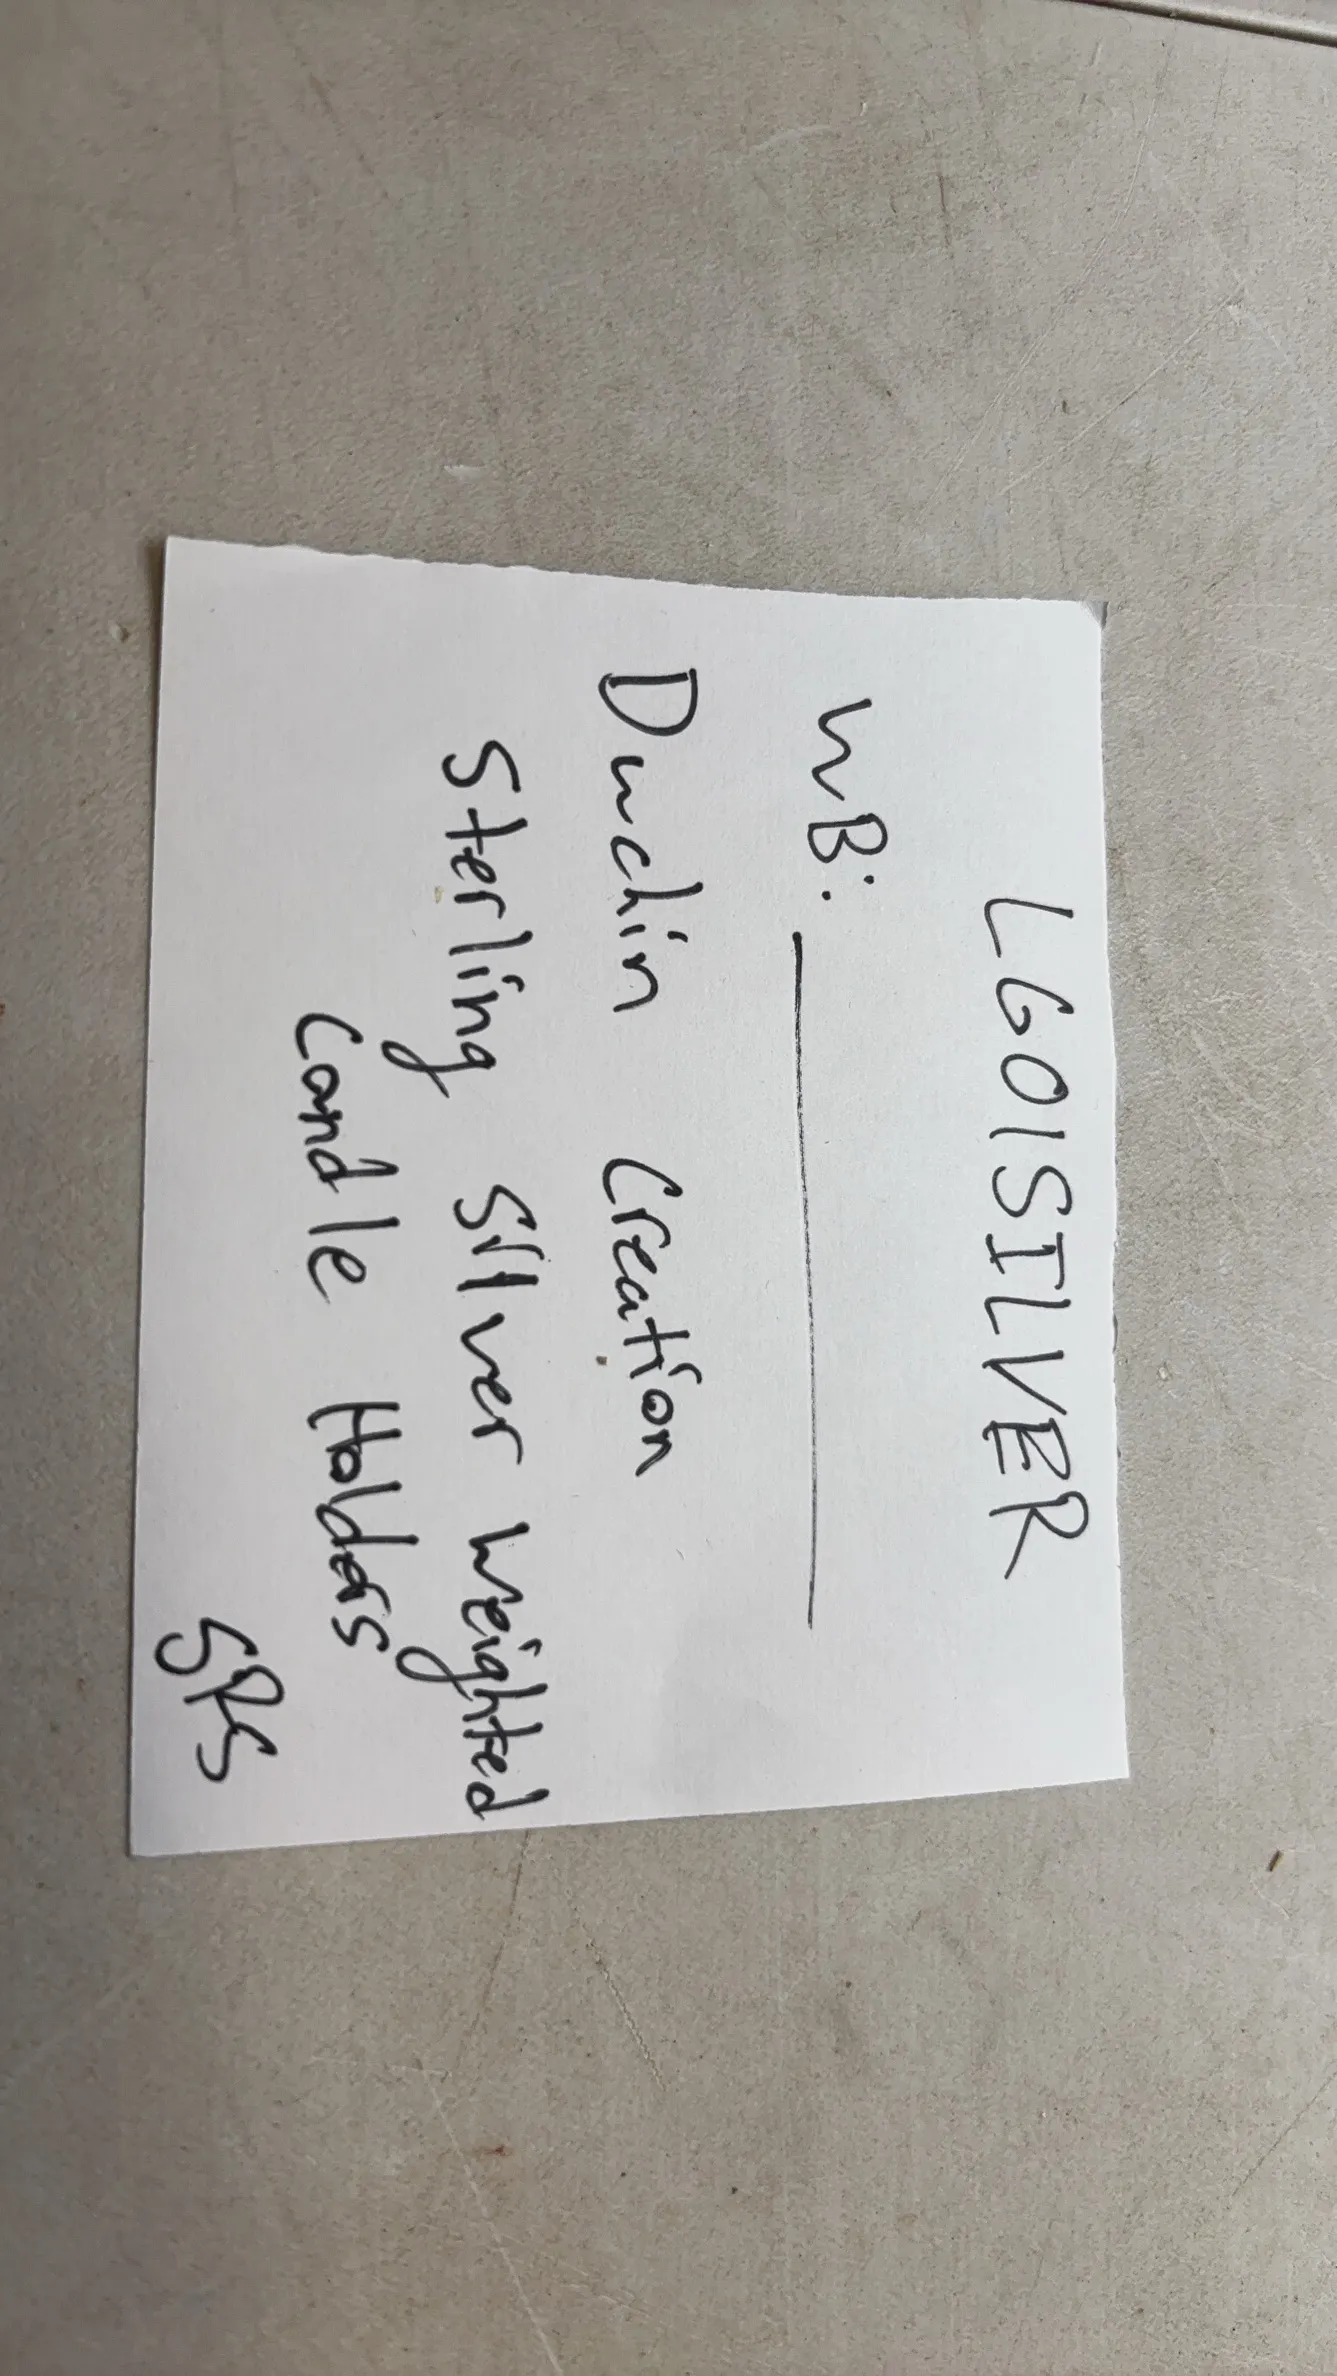 LGOISILVER
WB:
Duchin Creation
Sterling Silver Weighted
Candle Holders
SRS